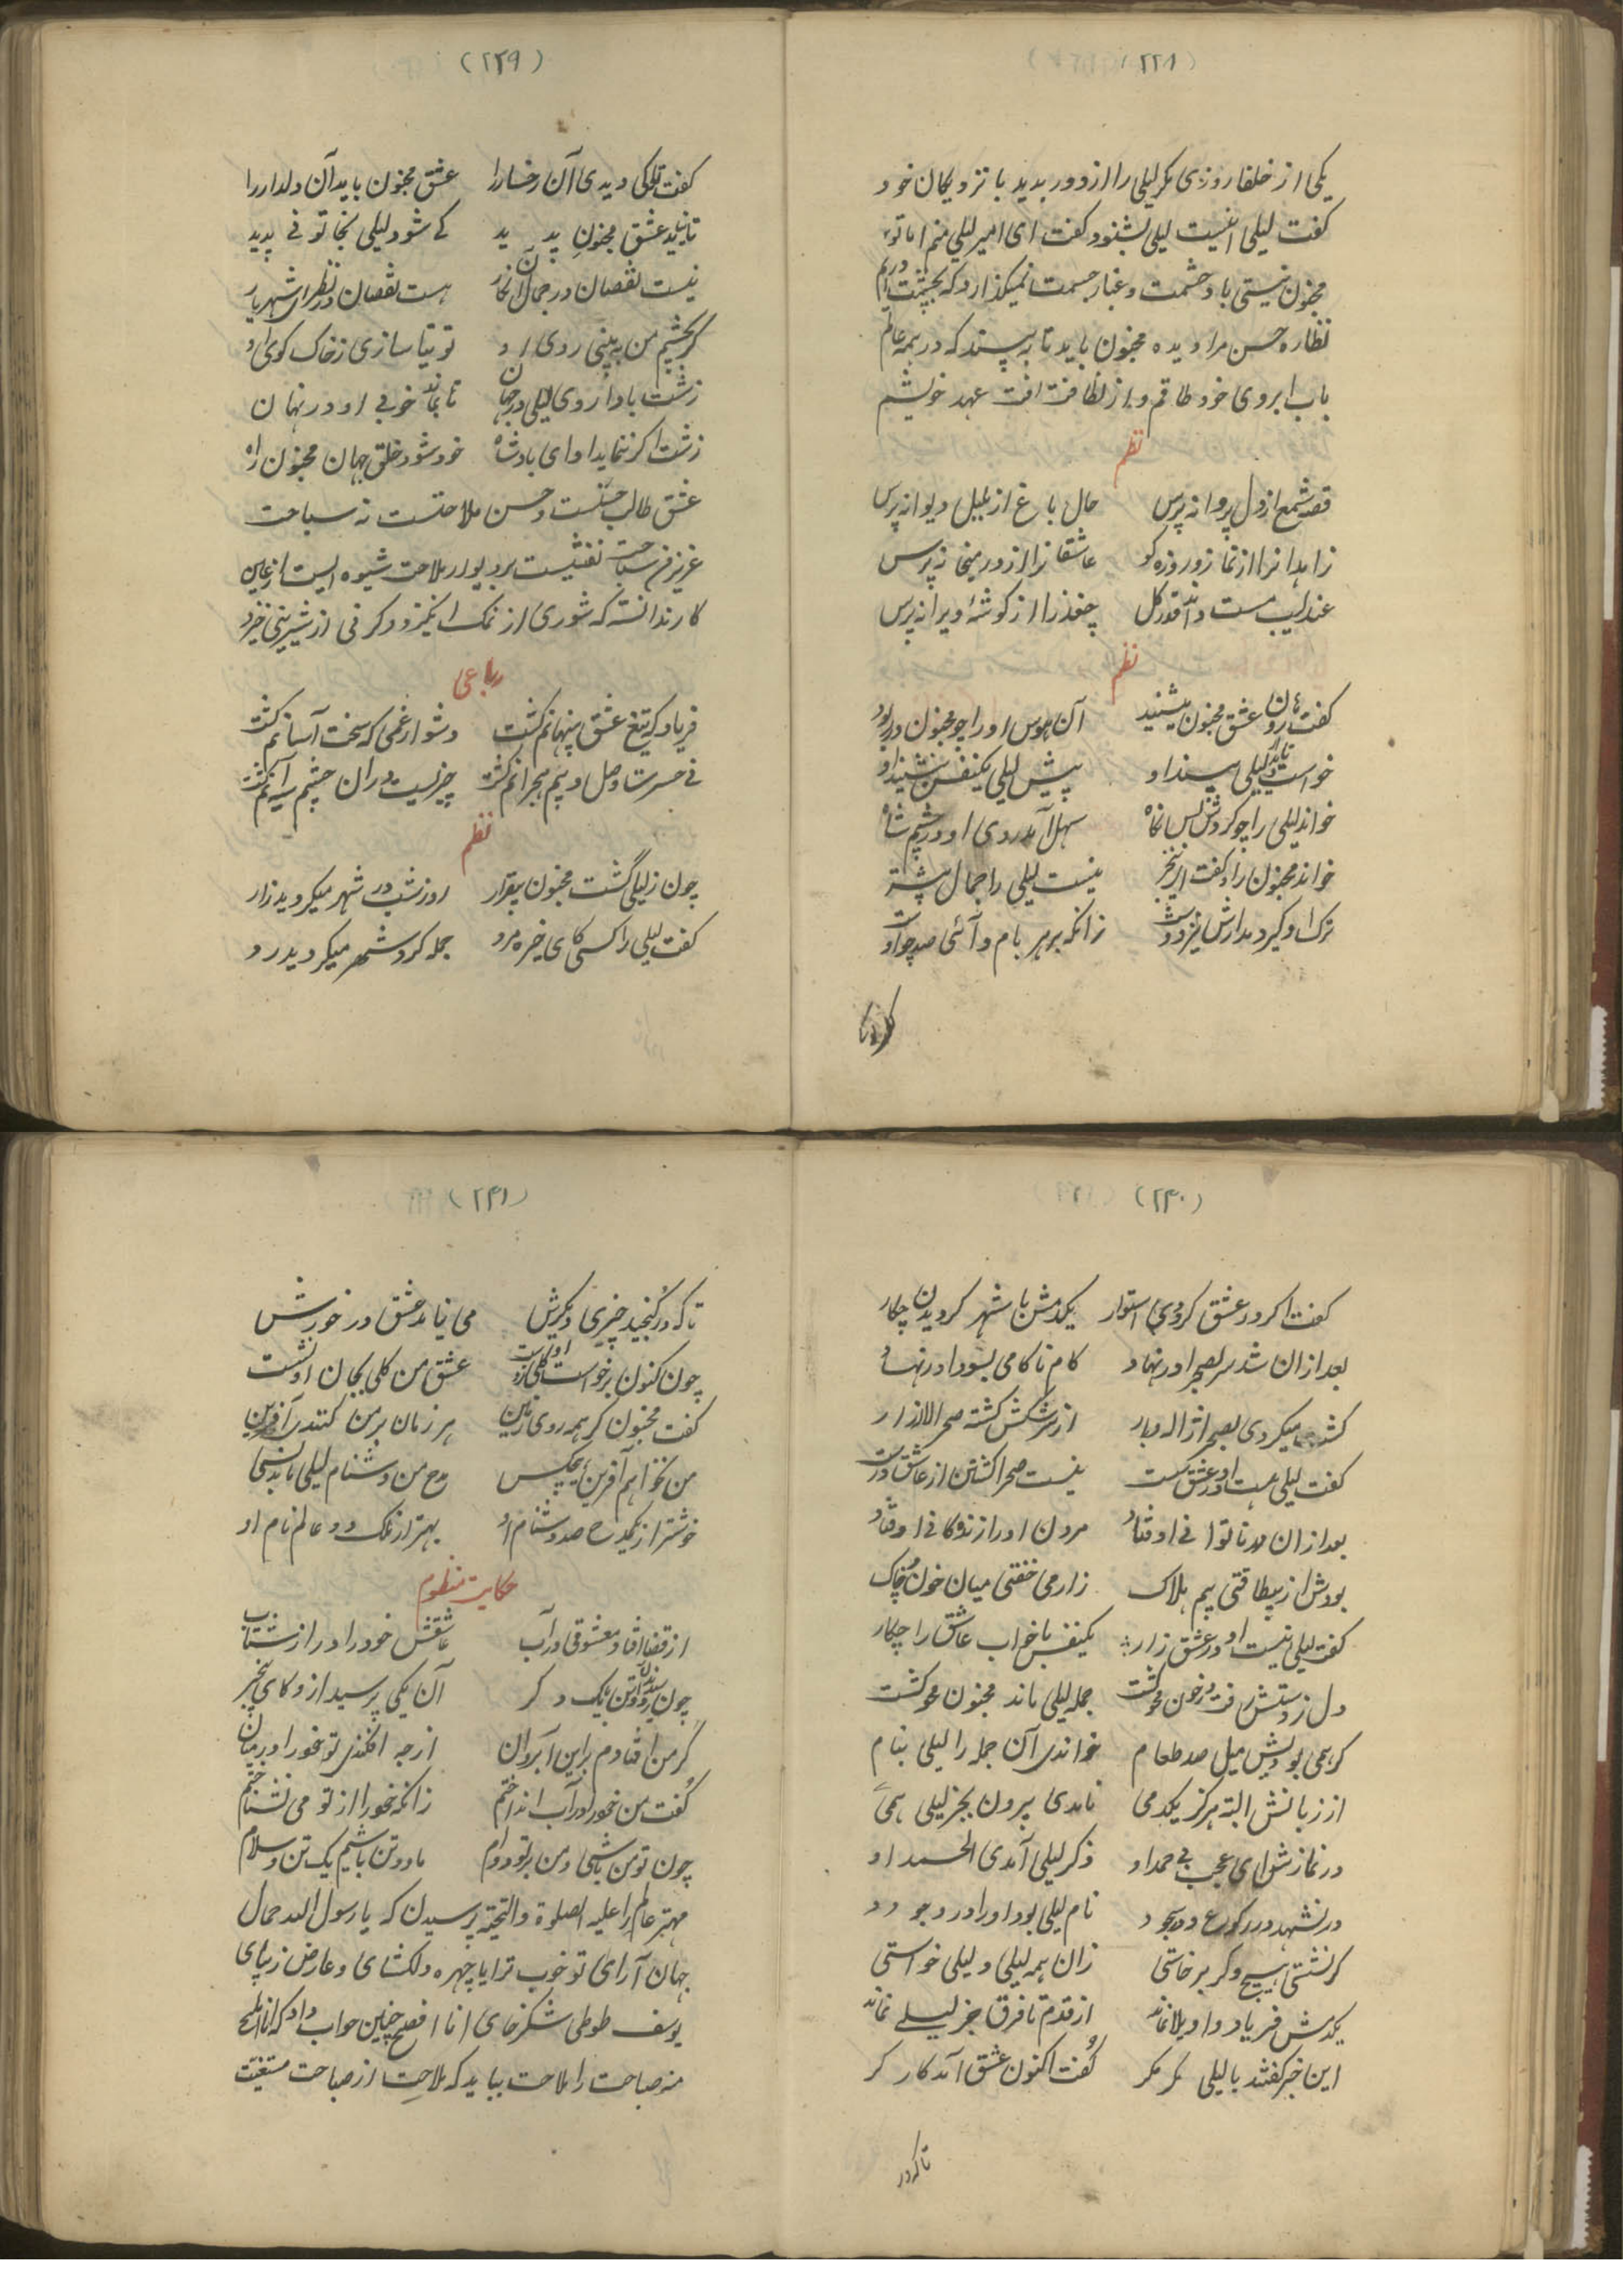 (۲۳۸)
یکی از خلفا روزی مگر لیلی را از دور بدید با نزدیکان خود
گفت لیلی اینست لیلی بشنود گفت ای امیر لیلی منم اما تو
مجنون نیستی باد حشمت و غبار جسمت نمیگذارد که بچشمت در آیم
نظاره حسن مرا دیده مجنون باید تا به بیند که در همه عالم
باب ابروی خود طاقم و از لطافت آفت عهد خویشم
نظم
قصه شمع از دل پروانه پرس حال باغ از بلبل دیوانه پرس
زاهدانرا از نماز و روزه گو عاشقانرا از در میخانه پرس
عندلیب مست داند قدر گل چغذ را از گوشهٔ ویرانه پرس
نظم
گفت هارون عشق مجنون میشنید آن هوس او را چو مجنون در ربود
خواست تا لیلی بیند او پیش لیلی یکنفس بنشیند او
خواند لیلی را چو کردش بس نگاه سهل آمد روی او در چشم شاه
خواند مجنون را و گفت ای بیخبر نیست لیلی را جمال بیشتر
ترک او گیر و مدارش نیز دوست زانکه بر هر بام و آئی صد چو اوست
گفت تو کی
(۲۳۹)
گفت تو کی دیدی آن رخسار را عشق مجنون باید آن دلدار را
تا نیاید عشق مجنون پدید کے شود لیلی بخاتونے پدید
نیست نقصان در جمال آن نگار هست نقصان در نظر ای شهریار
گر بچشم من به بینی روی او توتیا سازی ز خاک کوی او
زشت بادا روی لیلی در جهان تا بماند خوبی او در نهان
زشت اگر ننماید او ای بادشاه خود شود خلق جهان مجنون راه
عشق طالب حسنست و حسن ملاحتست نه سباحت
عزیز من سباحت نقشیست بر دیوار ملاحت شیوه ایست از عاین
کار ندانسته که شوری از نمک انگیزد و گر نی از شیرینی خیزد
رباعی
فریاد که تیغ عشق پنهانم کشت دشوار غمی که سخت آسانم کشت
نے حسرت وصل و بیم هجرانم کشت چیزیست در آن چشم سیه آنم کشت
نظم
چون ز لیلی گشت مجنون بیقرار روز و شب در شهر میگردید زار
گفت لیلی را کسی کای خیره مرد جمله گرد شهر میگردید رد
(۲۴۰)
گفت اگر در عشق کردوی استوار یکدمش با شهر گردیدن چکار
بعد از ان شد سر بصحرا در نهاد کام ناکامی بسود ا در نهاد
کشت میکردی بصحرا ژاله وار از سرشکش گشته صحرا لاله زار
گفت لیلی هست او در عشق سست نیست صحرا گشتن از عاشق درست
بعد از ان مدنا توا نی او فتاد مردن او را زندگانی او فتاد
بودش از بیطاقتی بیم هلاک زار می خفتی میان خون و خاک
گفت لیلی نیست او در عشق زار یکنفس با خواب عاشق را چکار
دل ز دستش رفت و در خون محو گشت جمله لیلی ماند مجنون محو گشت
گر همی بودیش میل صد طعام خواندی آن جمله را لیلی بنام
از زبانش البته هرگز یکدمی نامدی بیرون بجز لیلی همی
در نمازش ای عجب بے حمد او ذکر لیلی آمدی الحمد او
در تشهد در رکوع و در سجود نام لیلی بود او را در وجود
گر نشستی هیچ و گر بر خاستی زان همه لیلی و لیلی خواستی
یکدمش فریاد و اویلا نماند از قدم تا فرق جز لیلے نماند
این خبر گفتند با لیلی مگر گفت اکنون عشق آمد کارگر
تا که در
(۲۴۱)
تا که در گنجید چیزی دیگرش می نیاید عشق در خورش
چون کنون برخواست او کلی عشق من کلی بجان او نشست
گفت مجنون گر همه روی زمین هر زمان بر من کنندی آفرین
من نخواهم آفرین هیچکس مدح من دشنام لیلی باد بس
خوشتر از یکمدح صد دشنام او بهتر از ملک دو عالم نام او
حکایت منظوم
از قضا افتاد معشوقی در آب عاشقش خود را در از شتاب
چون رسیدند آن دو تن یک دگر آن یکی پرسید از و کای بیخبر
گر من افتادم براین آب روان از چه افگندی تو خود را در میان
گفت من خود را در آب انداختم زانکه خود را از تو می نشناختم
چون تو من باشی و من بر تو دوام ما دو تن باشیم یک تن والسلام
مهتر عالم را علیه الصلوة والتحیة پرسیدن که یا رسول الله جمال
جهان آرای تو خوب تر ایا چهره دلکشای و عارض زیبای
یوسف طوطی شکر خای انا افصح چنین جواب داد که انا املح
منه صباحت را ملاحت بباید که ملاحت از صباحت مستغنیت